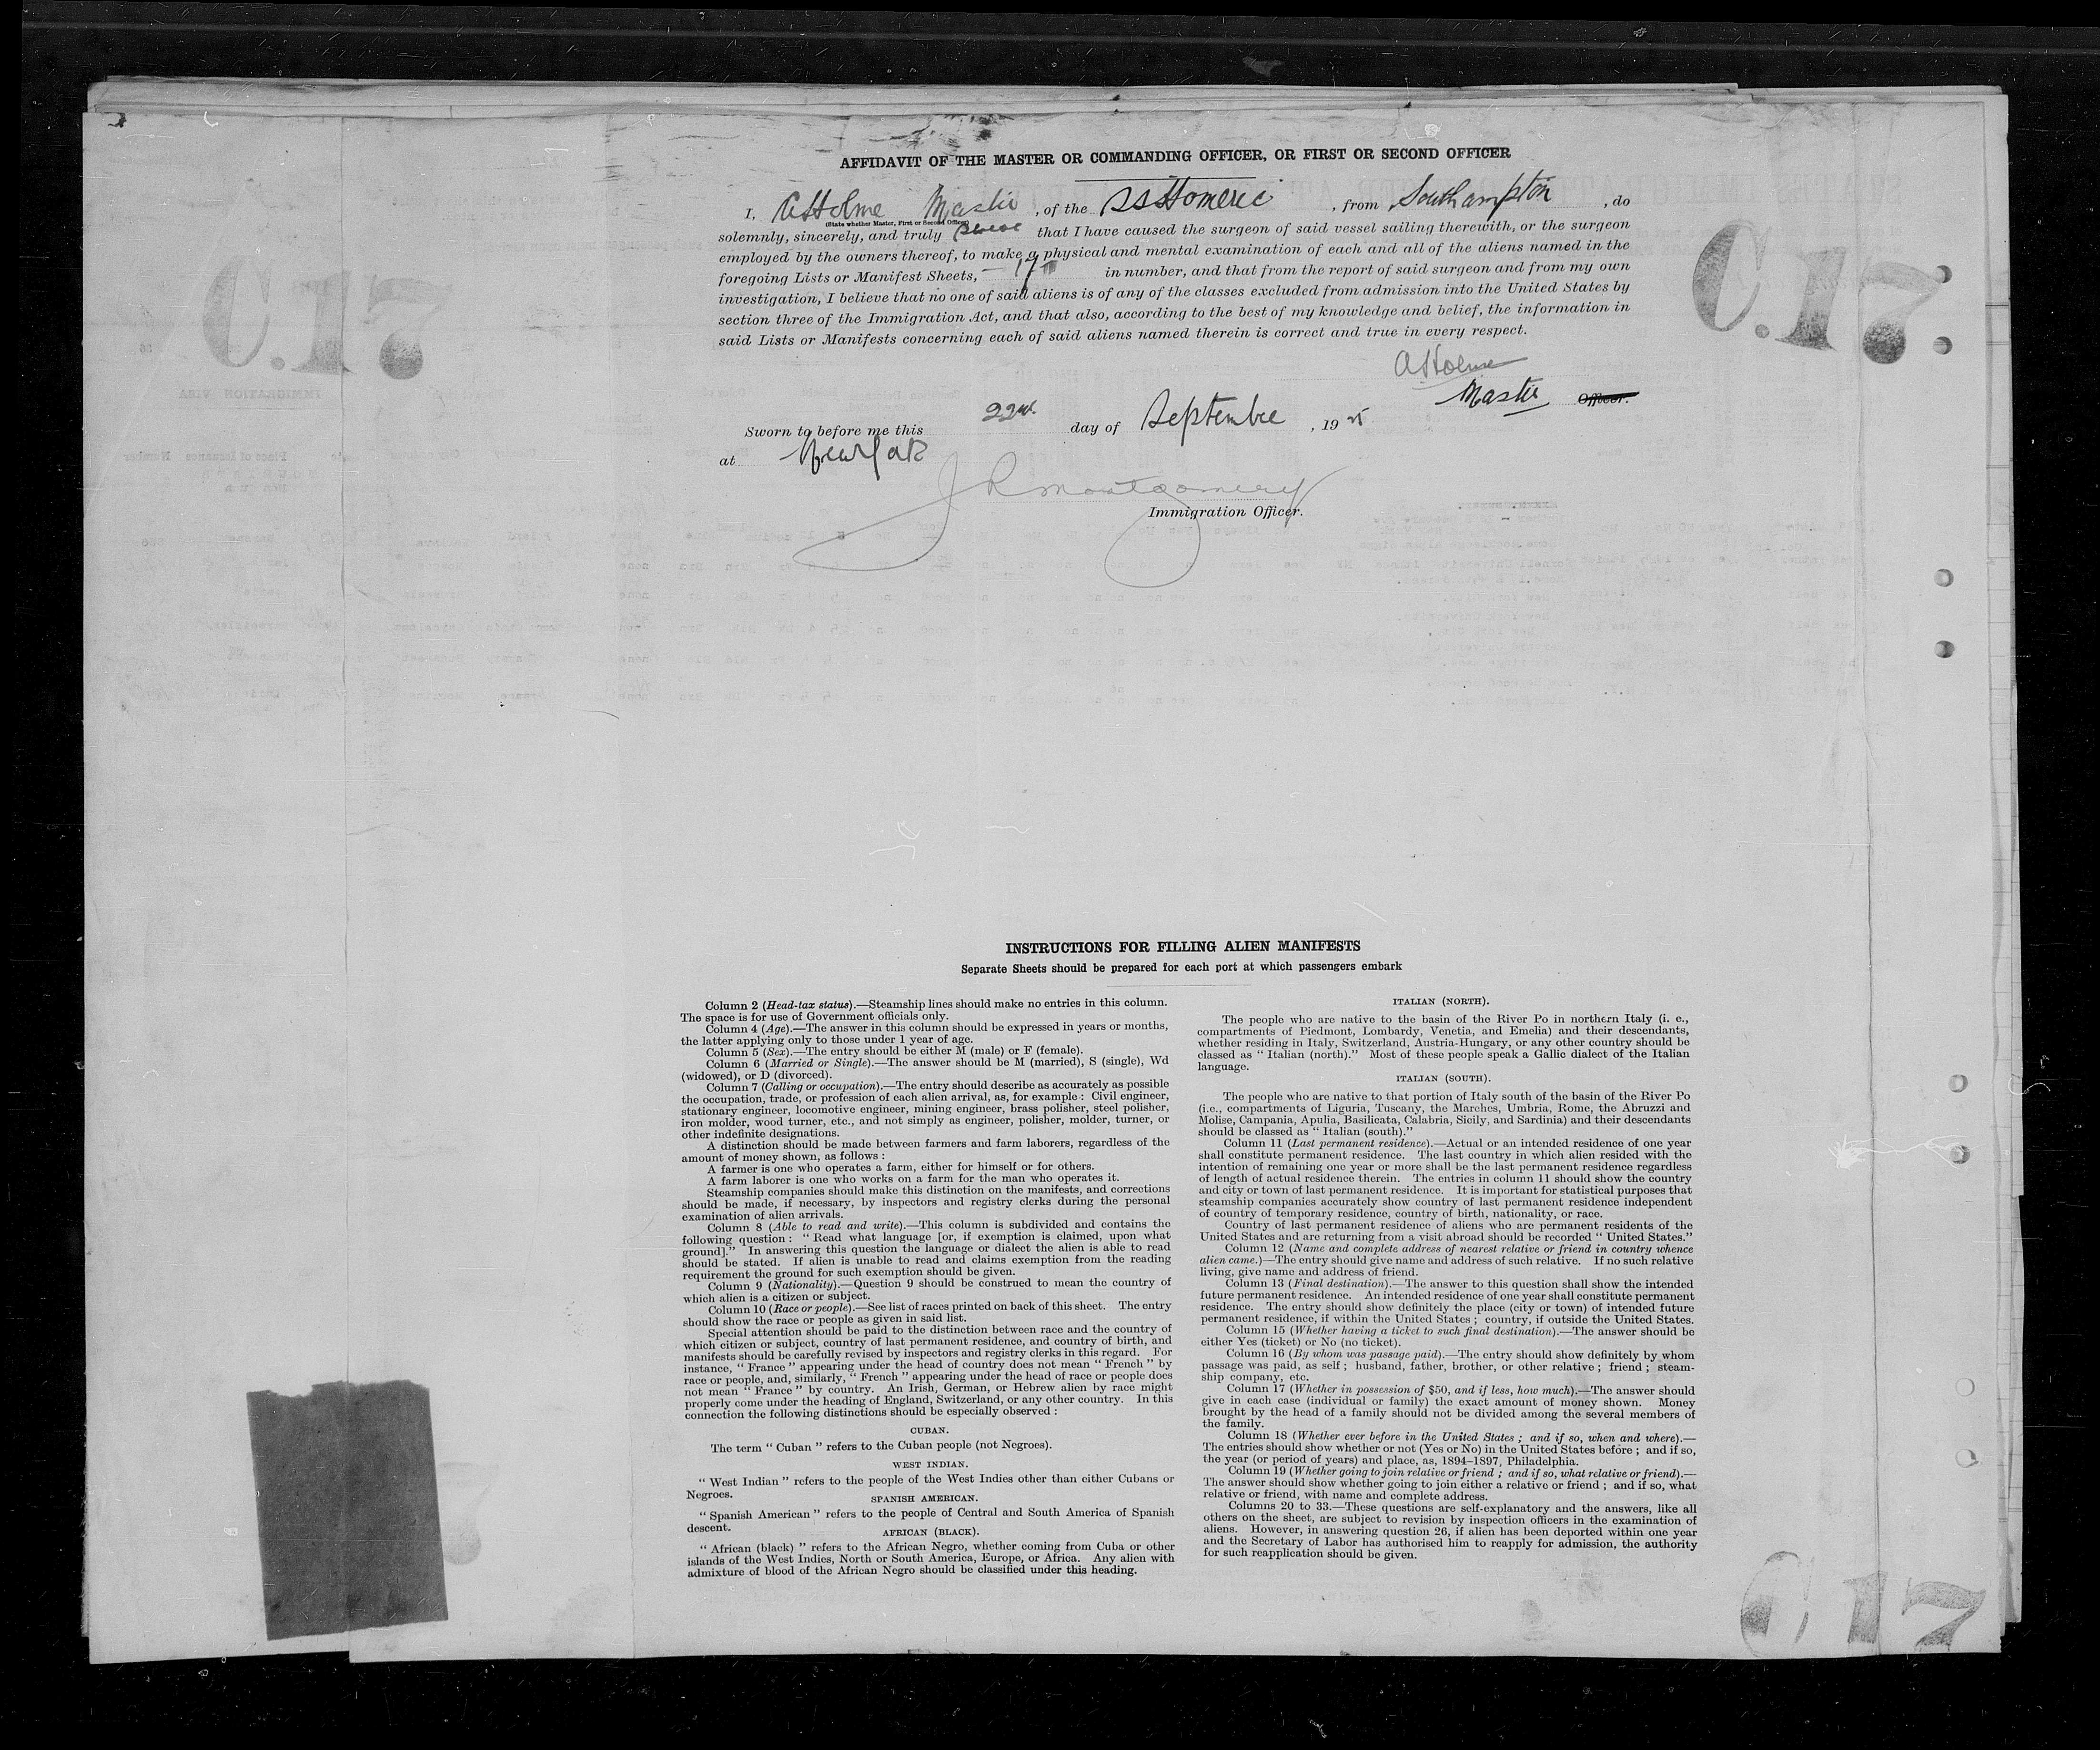 AFFIDAVIT OF THE MASTER OR COMMANDING OFFICER, OR FIRST OR SECOND OFFICER
I, A Holme Master, of the SS Homeric, from Southampton, do
(State whether Master, First or Second Officer)
solemnly, sincerely, and truly swear that I have caused the surgeon of said vessel sailing therewith, or the surgeon
employed by the owners thereof, to make a physical and mental examination of each and all of the aliens named in the
foregoing Lists or Manifest Sheets, in number, and that from the report of said surgeon and from my own
investigation, I believe that no one of said aliens is of any of the classes excluded from admission into the United States by
section three of the Immigration Act, and that also, according to the best of my knowledge and belief, the information in
said Lists or Manifests concerning each of said aliens named therein is correct and true in every respect.
A Holme
Master Officer.
Sworn to before me this 22nd day of September, 1925
at New York
J R Montgomery
Immigration Officer.
C.17
INSTRUCTIONS FOR FILLING ALIEN MANIFESTS
Separate Sheets should be prepared for each port at which passengers embark
Column 2 (Head-tax status).—Steamship lines should make no entries in this column.
The space is for use of Government officials only.
Column 4 (Age).—The answer in this column should be expressed in years or months,
the latter applying only to those under 1 year of age.
Column 5 (Sex).—The entry should be either M (male) or F (female).
Column 6 (Married or Single).—The answer should be M (married), S (single), Wd
(widowed), or D (divorced).
Column 7 (Calling or occupation).—The entry should describe as accurately as possible
the occupation, trade, or profession of each alien arrival, as, for example : Civil engineer,
stationary engineer, locomotive engineer, mining engineer, brass polisher, steel polisher,
iron molder, wood turner, etc., and not simply as engineer, polisher, molder, turner, or
other indefinite designations.
A distinction should be made between farmers and farm laborers, regardless of the
amount of money shown, as follows :
A farmer is one who operates a farm, either for himself or for others.
A farm laborer is one who works on a farm for the man who operates it.
Steamship companies should make this distinction on the manifests, and corrections
should be made, if necessary, by inspectors and registry clerks during the personal
examination of alien arrivals.
Column 8 (Able to read and write).—This column is subdivided and contains the
following question : " Read what language [or, if exemption is claimed, upon what
ground]." In answering this question the language or dialect the alien is able to read
should be stated. If alien is unable to read and claims exemption from the reading
requirement the ground for such exemption should be given.
Column 9 (Nationality).—Question 9 should be construed to mean the country of
which alien is a citizen or subject.
Column 10 (Race or people).—See list of races printed on back of this sheet. The entry
should show the race or people as given in said list.
Special attention should be paid to the distinction between race and the country of
which citizen or subject, country of last permanent residence, and country of birth, and
manifests should be carefully revised by inspectors and registry clerks in this regard. For
instance, " France " appearing under the head of country does not mean " French " by
race or people, and, similarly, " French " appearing under the head of race or people does
not mean " France " by country. An Irish, German, or Hebrew alien by race might
properly come under the heading of England, Switzerland, or any other country. In this
connection the following distinctions should be especially observed :
CUBAN.
The term " Cuban " refers to the Cuban people (not Negroes).
WEST INDIAN.
" West Indian " refers to the people of the West Indies other than either Cubans or
Negroes.
SPANISH AMERICAN.
" Spanish American " refers to the people of Central and South America of Spanish
descent.
AFRICAN (BLACK).
" African (black) " refers to the African Negro, whether coming from Cuba or other
islands of the West Indies, North or South America, Europe, or Africa. Any alien with
admixture of blood of the African Negro should be classified under this heading.
ITALIAN (NORTH).
The people who are native to the basin of the River Po in northern Italy (i. e.,
compartments of Piedmont, Lombardy, Venetia, and Emelia) and their descendants,
whether residing in Italy, Switzerland, Austria-Hungary, or any other country should be
classed as " Italian (north)." Most of these people speak a Gallic dialect of the Italian
language.
ITALIAN (SOUTH).
The people who are native to that portion of Italy south of the basin of the River Po
(i.e., compartments of Liguria, Tuscany, the Marches, Umbria, Rome, the Abruzzi and
Molise, Campania, Apulia, Basilicata, Calabria, Sicily, and Sardinia) and their descendants
should be classed as " Italian (south)."
Column 11 (Last permanent residence).—Actual or an intended residence of one year
shall constitute permanent residence. The last country in which alien resided with the
intention of remaining one year or more shall be the last permanent residence regardless
of length of actual residence therein. The entries in column 11 should show the country
and city or town of last permanent residence. It is important for statistical purposes that
steamship companies accurately show country of last permanent residence independent
of country of temporary residence, country of birth, nationality, or race.
Country of last permanent residence of aliens who are permanent residents of the
United States and are returning from a visit abroad should be recorded " United States."
Column 12 (Name and complete address of nearest relative or friend in country whence
alien came.)—The entry should give name and address of such relative. If no such relative
living, give name and address of friend.
Column 13 (Final destination).—The answer to this question shall show the intended
future permanent residence. An intended residence of one year shall constitute permanent
residence. The entry should show definitely the place (city or town) of intended future
permanent residence, if within the United States ; country, if outside the United States.
Column 15 (Whether having a ticket to such final destination).—The answer should be
either Yes (ticket) or No (no ticket).
Column 16 (By whom was passage paid).—The entry should show definitely by whom
passage was paid, as self ; husband, father, brother, or other relative ; friend ; steam-
ship company, etc.
Column 17 (Whether in possession of $50, and if less, how much).—The answer should
give in each case (individual or family) the exact amount of money shown. Money
brought by the head of a family should not be divided among the several members of
the family.
Column 18 (Whether ever before in the United States ; and if so, when and where).—
The entries should show whether or not (Yes or No) in the United States before ; and if so,
the year (or period of years) and place, as, 1894–1897, Philadelphia.
Column 19 (Whether going to join relative or friend ; and if so, what relative or friend).—
The answer should show whether going to join either a relative or friend ; and if so, what
relative or friend, with name and complete address.
Columns 20 to 33.—These questions are self-explanatory and the answers, like all
others on the sheet, are subject to revision by inspection officers in the examination of
aliens. However, in answering question 26, if alien has been deported within one year
and the Secretary of Labor has authorised him to reapply for admission, the authority
for such reapplication should be given.
C 17